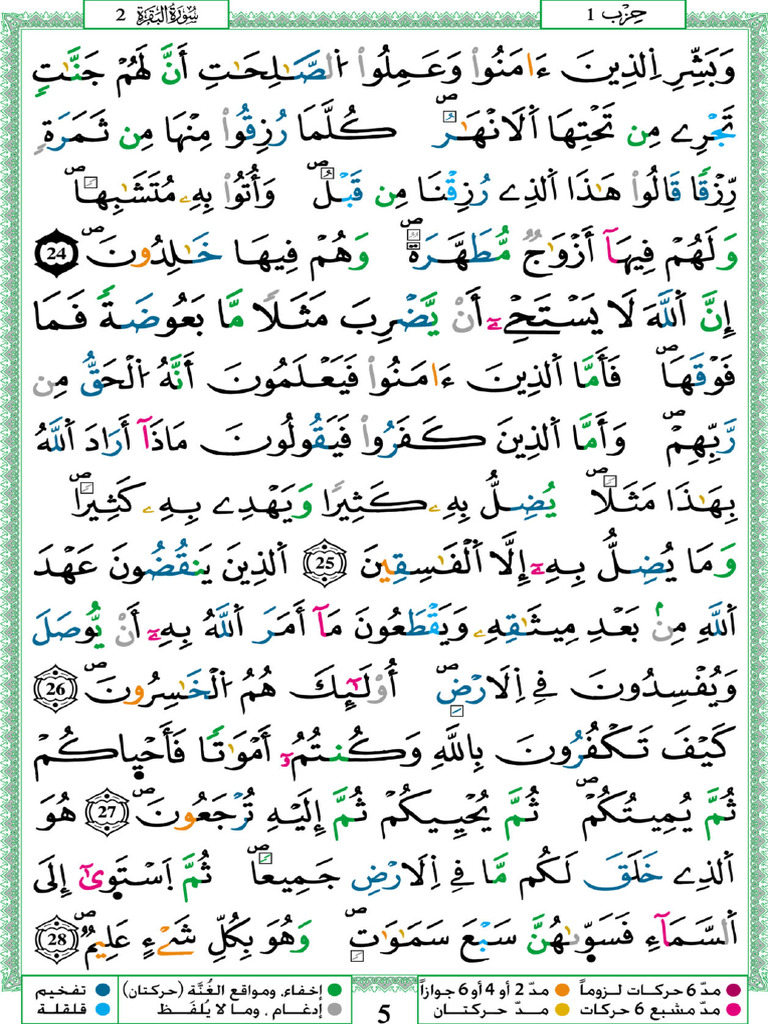 سُورَةُ البَقَرَةِ 2
حِزْب 1
وَبَشِّرِ اِ۬لذِينَ ءَامَنُواْ وَعَمِلُواْ اُ۬لصَّٰلِحَٰتِ أَنَّ لَهُمْ جَنَّٰتٖ
تَجْرِے مِن تَحْتِهَا اَ۬لَانْهَٰرُۖ كُلَّمَا رُزِقُواْ مِنْهَا مِن ثَمَرَةٖ
رِّزْقاٗ قَالُواْ هَٰذَا اَ۬لذِے رُزِقْنَا مِن قَبْلُۖ وَأُتُواْ بِهِۦ مُتَشَٰبِهاٗۖ
وَلَهُمْ فِيهَآ أَزْوَٰجٞ مُّطَهَّرَةٞۖ وَهُمْ فِيهَا خَٰلِدُونَۖ 24
إِنَّ اَ۬للَّهَ لَا يَسْتَحْيِۦٓ أَنْ يَّضْرِبَ مَثَلاٗ مَّا بَعُوضَةٗ فَمَا
فَوْقَهَاۖ فَأَمَّا اَ۬لذِينَ ءَامَنُواْ فَيَعْلَمُونَ أَنَّهُ اُ۬لْحَقُّ مِن
رَّبِّهِمْۖ وَأَمَّا اَ۬لذِينَ كَفَرُواْ فَيَقُولُونَ مَاذَآ أَرَادَ اَ۬للَّهُ
بِهَٰذَا مَثَلاٗۖ يُضِلُّ بِهِۦ كَثِيراٗ وَيَهْدِے بِهِۦ كَثِيراٗۖ
وَمَا يُضِلُّ بِهِۦٓ إِلَّا اَ۬لْفَٰسِقِينَ 25 اَ۬لذِينَ يَنقُضُونَ عَهْدَ
اَ۬للَّهِ مِنۢ بَعْدِ مِيثَٰقِهِۦ وَيَقْطَعُونَ مَآ أَمَرَ اَ۬للَّهُ بِهِۦٓ أَنْ يُّوصَلَ
وَيُفْسِدُونَ فِے اِ۬لَارْضِۖ أُوْلَٰٓئِكَ هُمُ اُ۬لْخَٰسِرُونَۖ 26
كَيْفَ تَكْفُرُونَ بِاللَّهِ وَكُنتُمُۥٓ أَمْوَٰتاٗ فَأَحْيٰ۪كُمْ
ثُمَّ يُمِيتُكُمْۖ ثُمَّ يُحْيِيكُمْ ثُمَّ إِلَيْهِ تُرْجَعُونَۖ 27 هُوَ
اَ۬لذِے خَلَقَ لَكُم مَّا فِے اِ۬لَارْضِ جَمِيعاٗۖ ثُمَّ اَ۪سْتَو۪يٰٓ إِلَى
اَ۬لسَّمَآءِ فَسَوّ۪يٰهُنَّ سَبْعَ سَمَٰوَٰتٖۖ وَهُوَ بِكُلِّ شَےْءٍ عَلِيمٞۖ 28
مدّ 6 حركات لزوماً
مدّ 2 أو 4 أو 6 جوازاً
إخفاء، ومواقع الغُنَّة (حركتان)
تفخيم
مدّ مشبع 6 حركات
مدّ حركتان
إدغام ، وما لا يُلفَظ
قلقلة
5